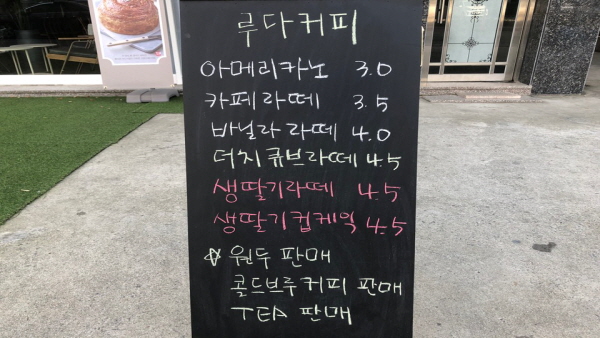 루다커피
아메리카노 3.0
카페라떼 3.5
바닐라라떼 4.0
더치큐브라떼 4.5
생딸기라떼 4.5
생딸기컵케익 4.5
☆ 원두 판매
콜드브루커피 판매
TEA 판매